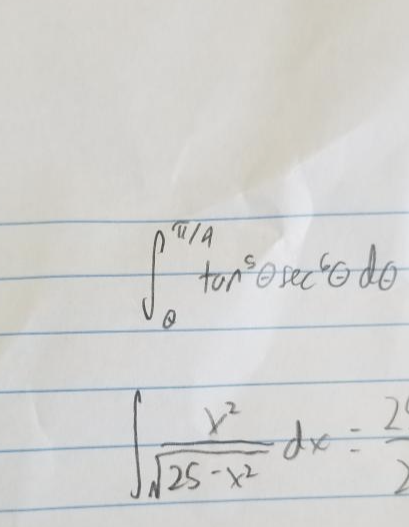 ∫_0^{π/4} tan^5 θ sec^6 θ dθ
∫ x^2/√(25-x^2) dx =